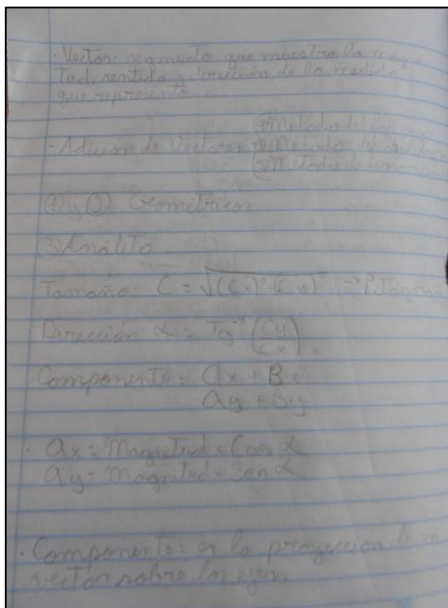 · Vector: segmento que muestra la magni
tud, sentido y dirección de la medida
que representa.
- Adición de Vectores
① y ② Geométricos
③ Analíto
Tamaño C = √(Cx)² (Cy)²
Dirección α = Tg⁻¹ (Cy/Cx)
Componente = ax + Bx
ay + By
· ax = Magnitud × Cos α
ay = Magnitud × Sen α
· Componente: es la proyección de un
vector sobre los ejes.